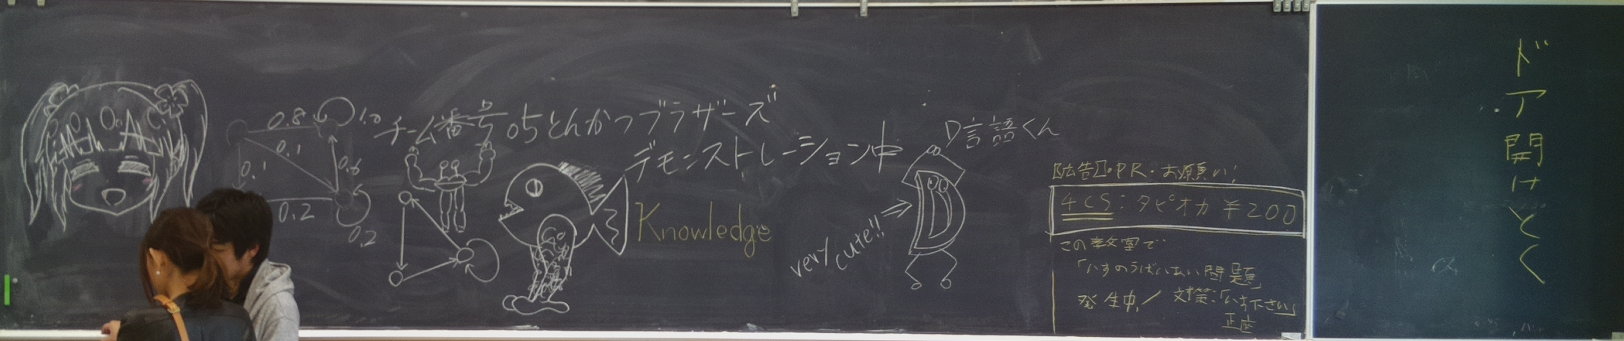 0.8
1.0
0.1
0.1
0.6
0.2
0.2
チーム番号05とんかつブラザーズ
デモンストレーション中
Knowledge
D言語くん
very cute!!
【広告】・PR・お願い!
4CS:タピオカ ¥200
この教室で
「いすのうばいあい問題」
発生中!
対策:「いす下さい」
正座
ドア開けとく